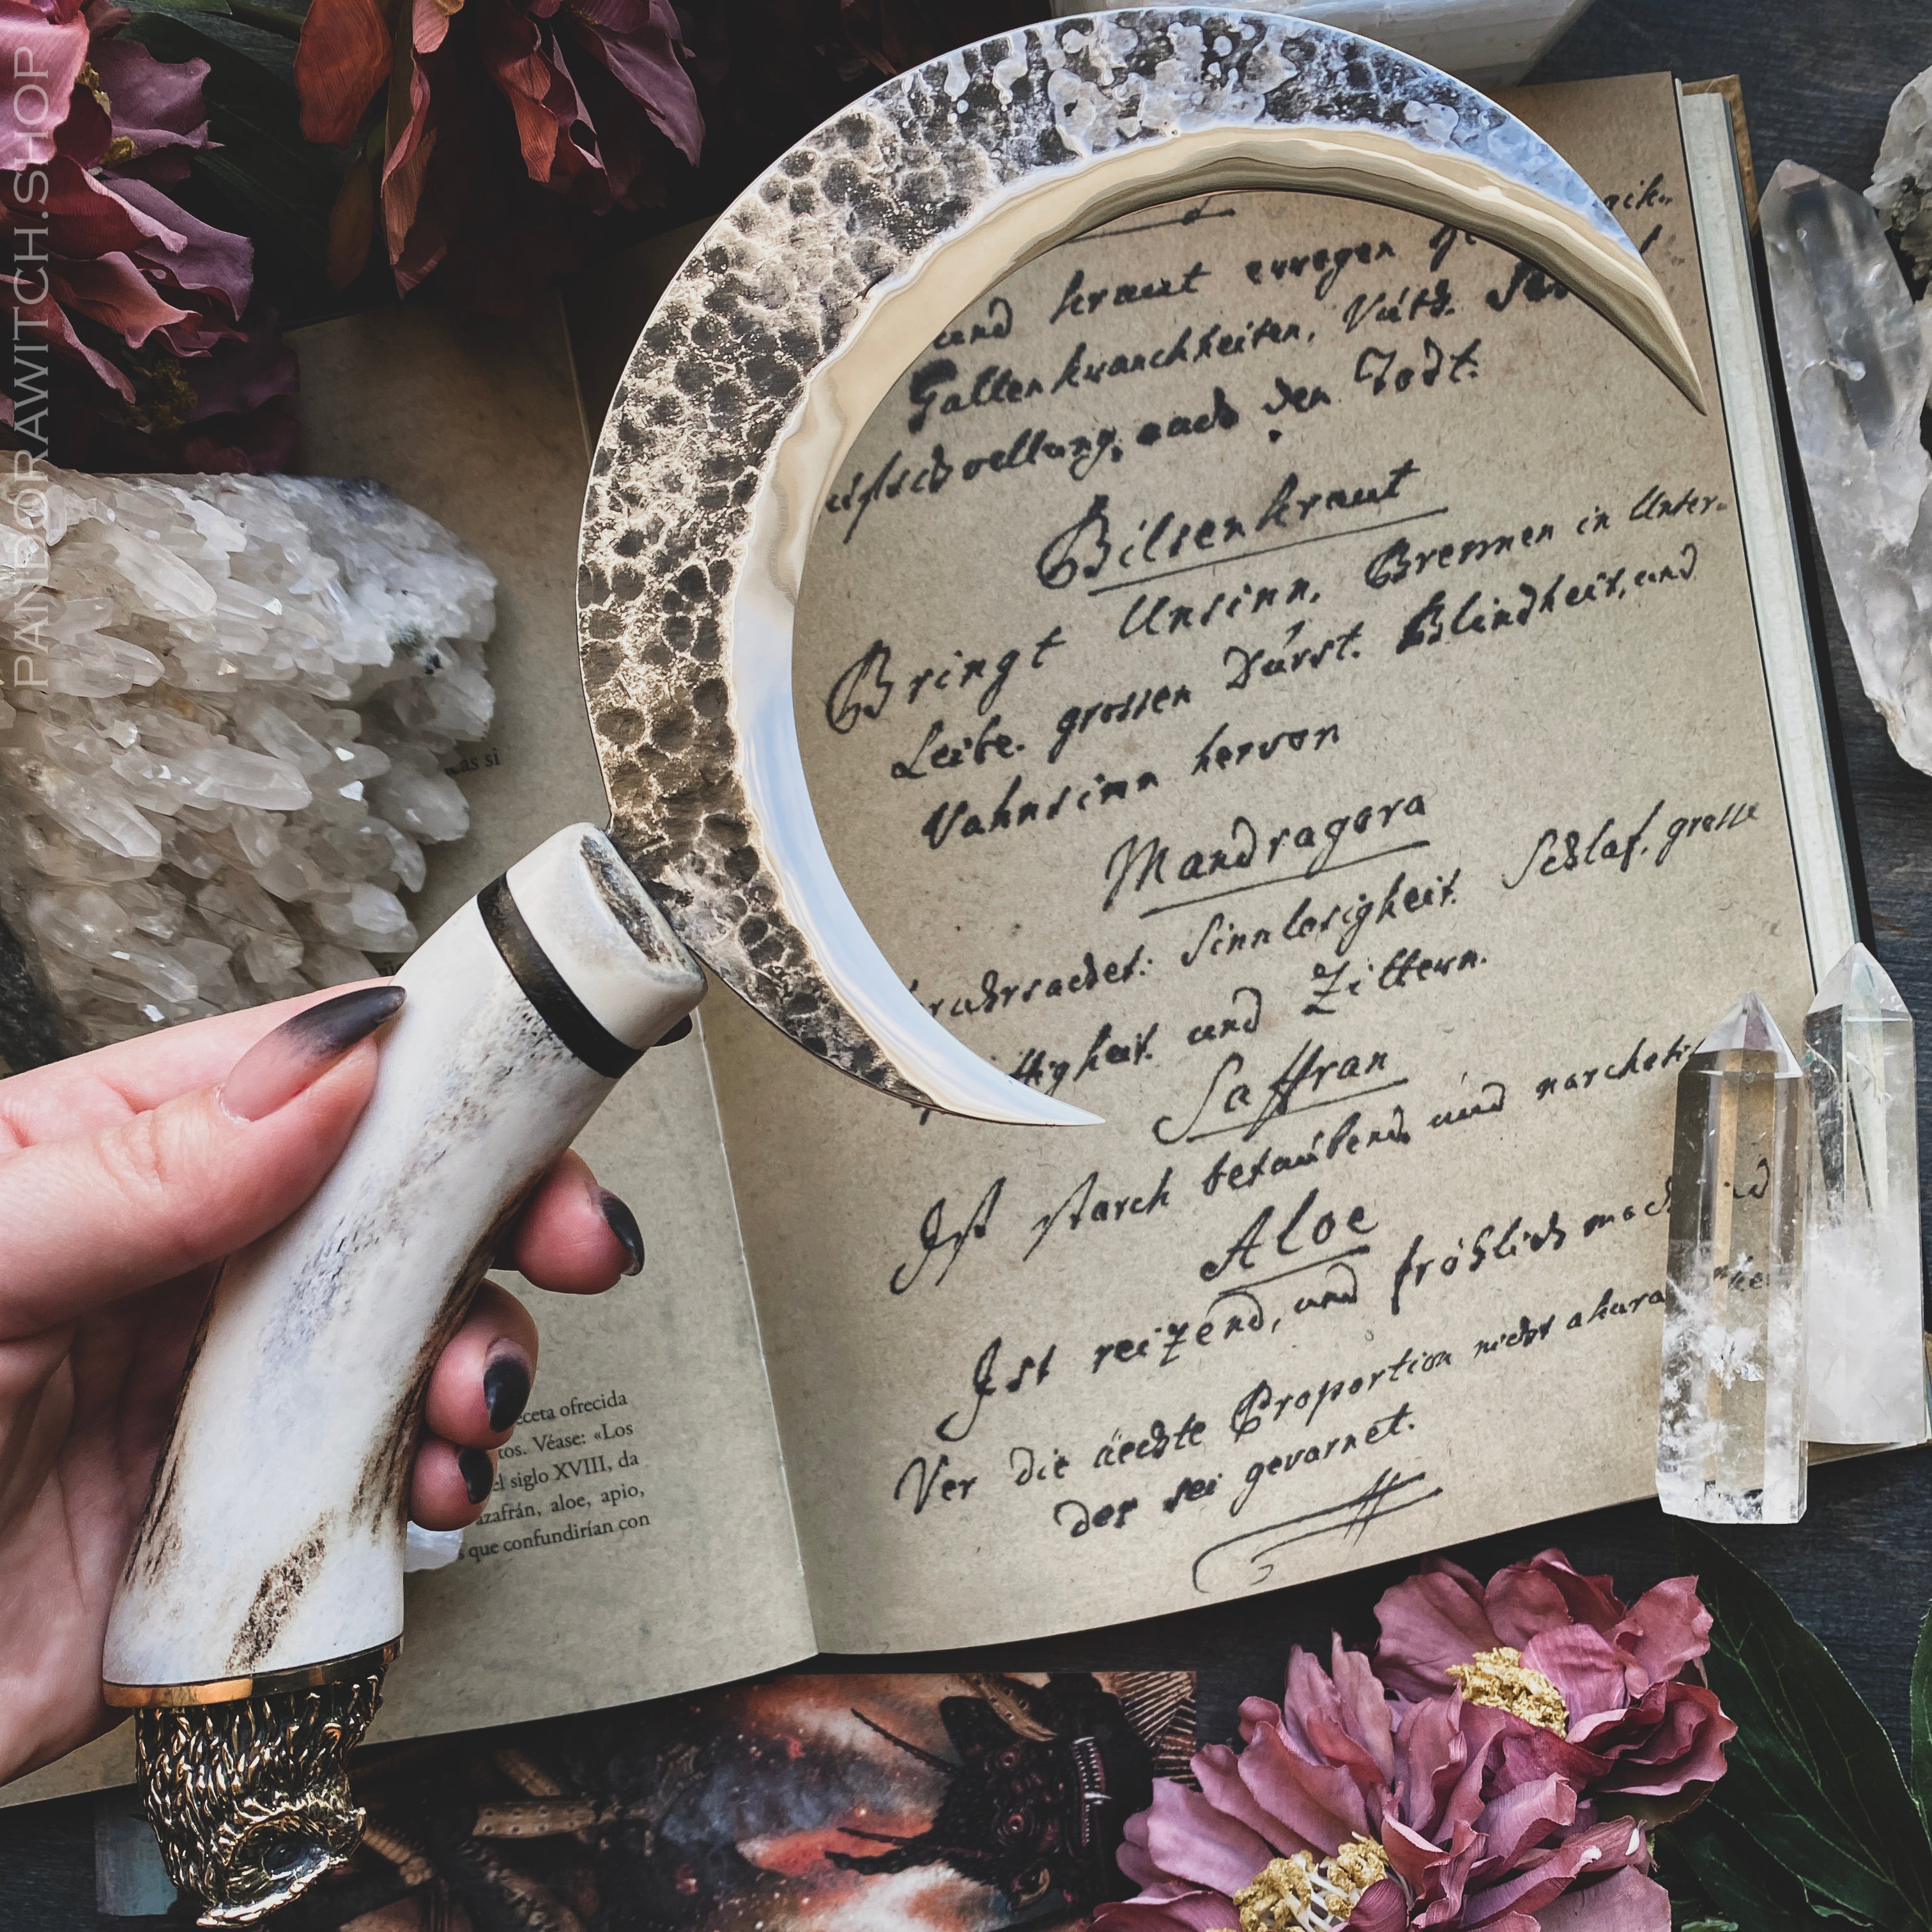 PANDORAWITCH.SHOP
und kraut erregen
Gallenkranckheiten, Vúth.
nach den Todt.
Bilsenkraut
Bringt Unsinn, Brennen in Unter-
Leibe. grossen Dúrst. Blindheit, und
Vahnsinn hervor
Mandragora
Sinnlosigheit. Schlaf. grosse
und Zittern.
Saffran
Ist starck betaúbend, und
Aloe
Ist reizend, und fröhlich
Ver die áechte Proportion nicht
der sei gevarnet.
as si
eceta ofrecida
tos. Véase: «Los
el siglo XVIII, da
azafrán, aloe, apio,
que confundirían con